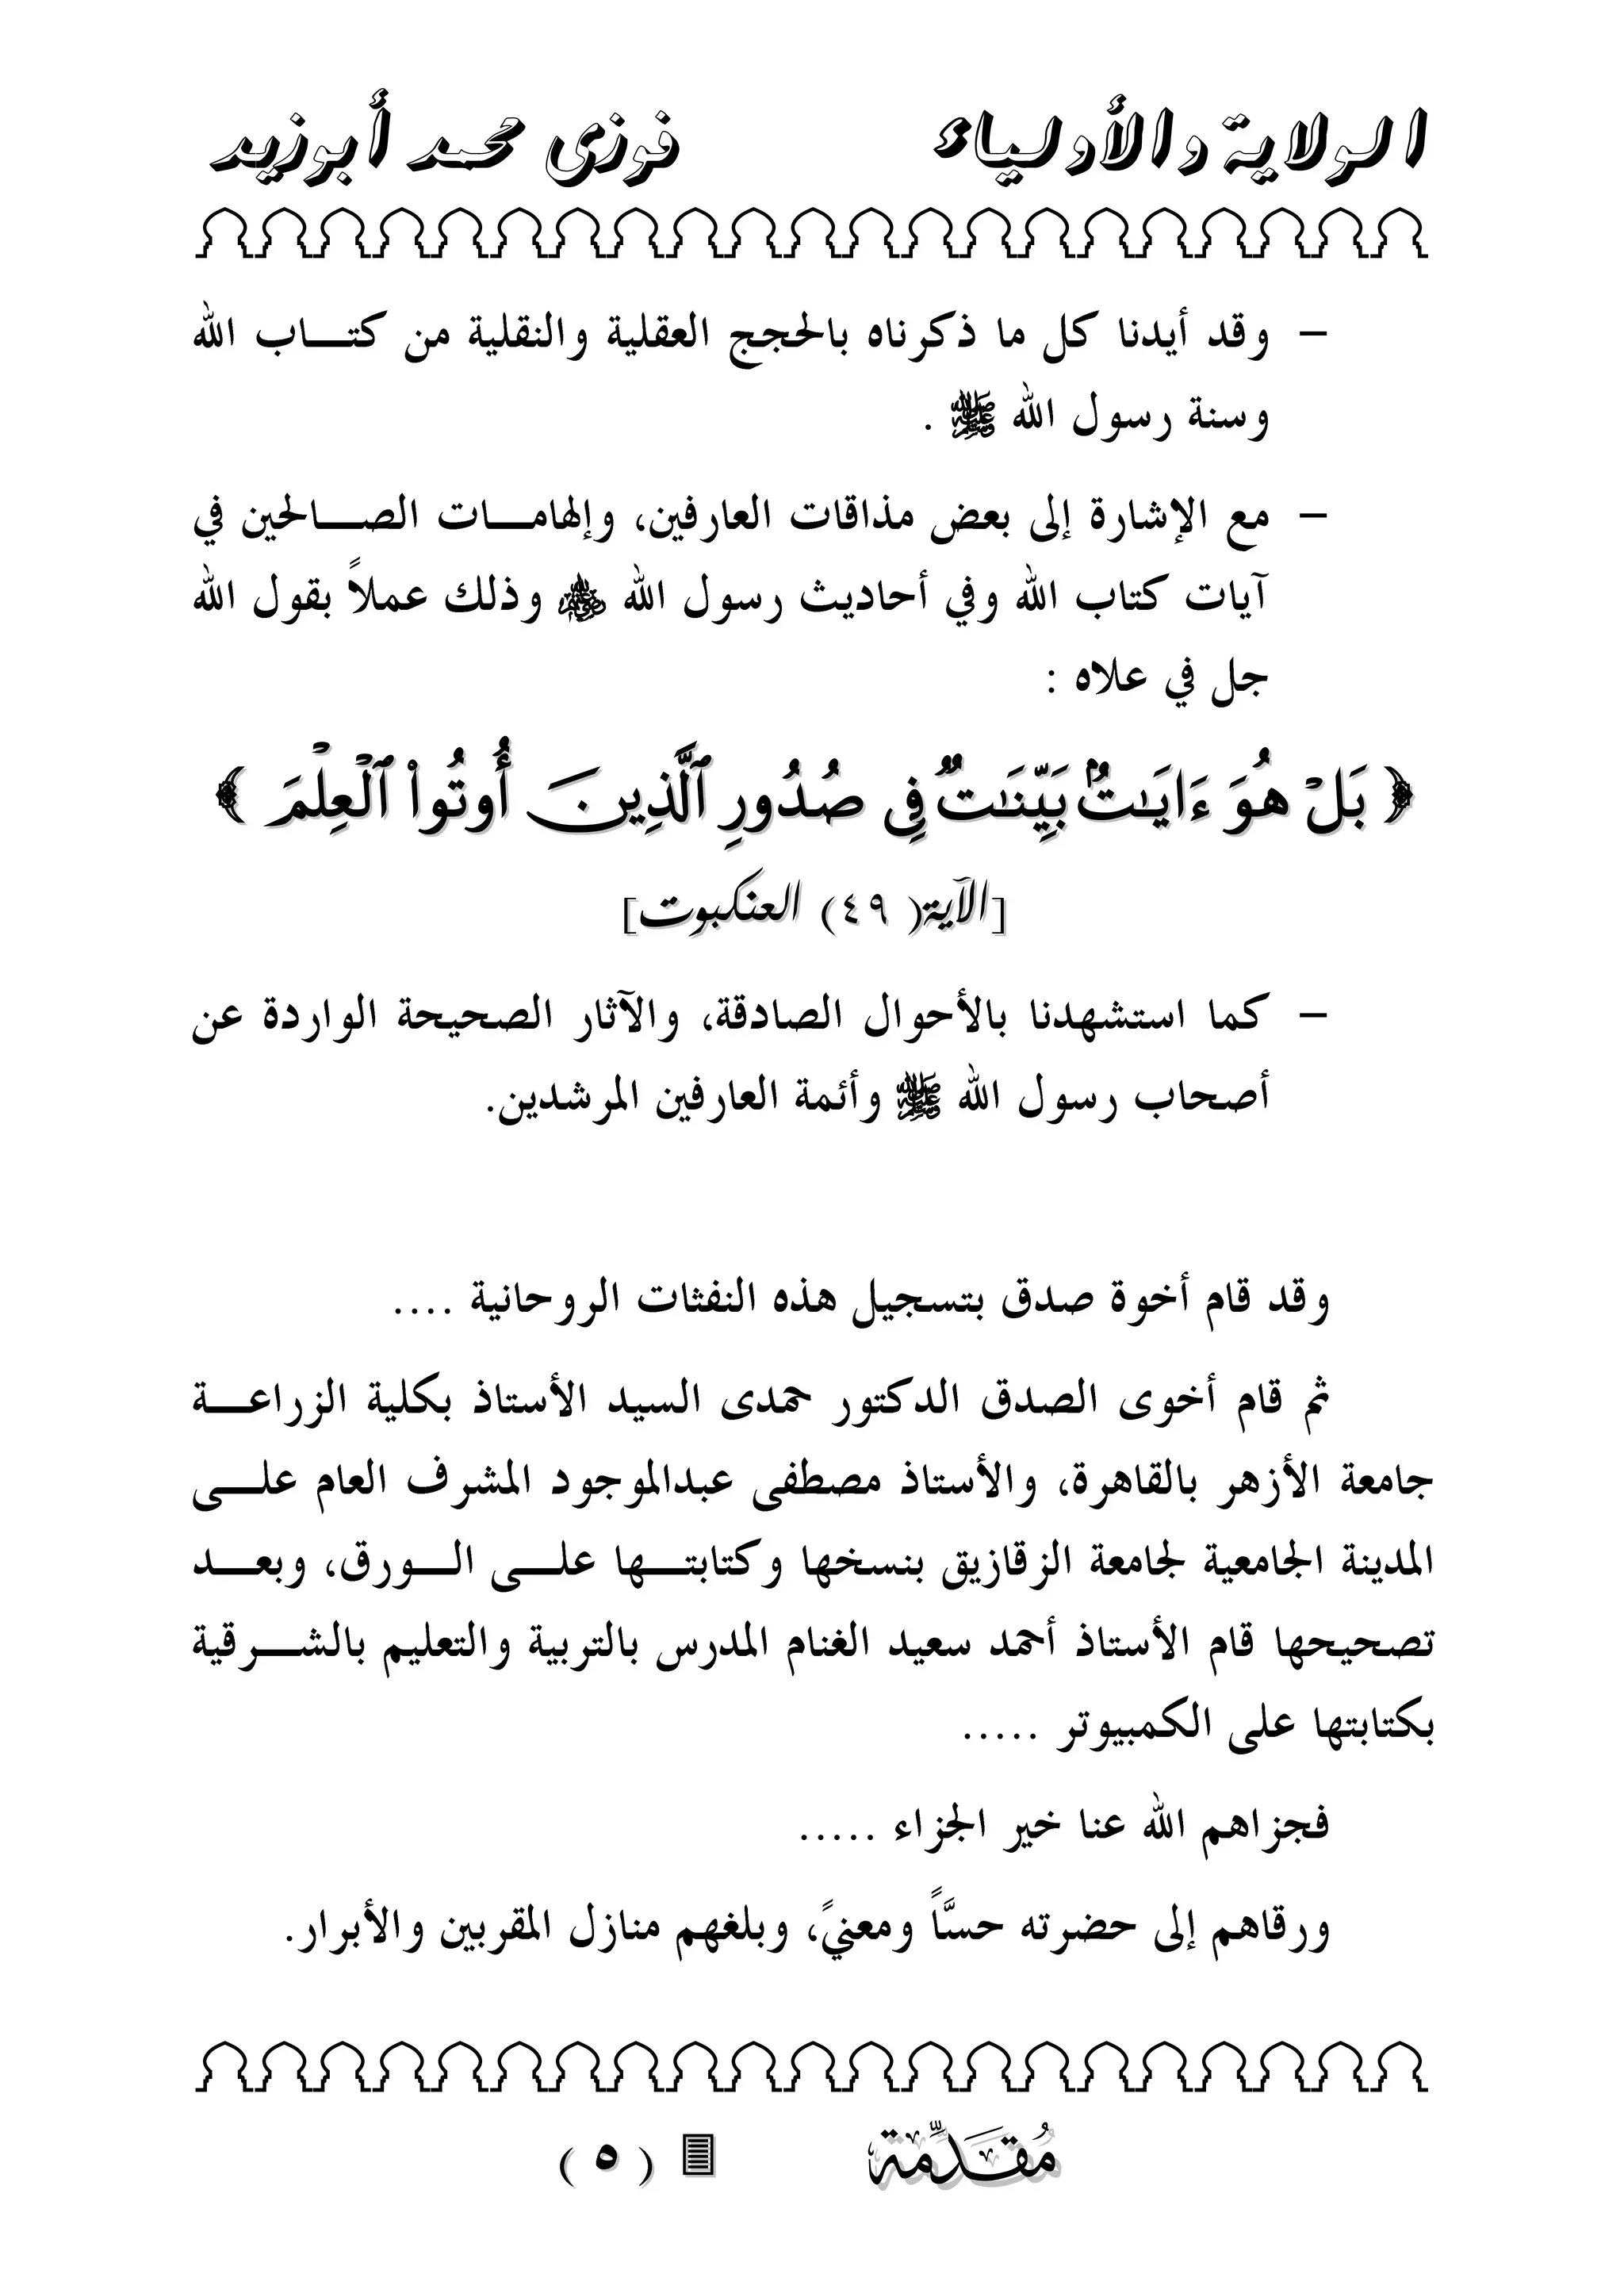 الولاية والأولياء فوزى محمد أبوزيد
- وقد أيدنا كل ما ذكرناه بالحجج العقلية والنقلية من كتـــاب الله
وسنة رسول الله ﷺ .
- مع الإشارة إلى بعض مذاقات العارفين، وإلهامـــات الصـــالحين في
آيات كتاب الله وفي أحاديث رسول الله ﷺ وذلك عملاً بقول الله
جل في علاه :
﴿ بَلْ هُوَ ءَايَـٰتٌۢ بَيِّنَـٰتٌ فِى صُدُورِ ٱلَّذِينَ أُوتُوا۟ ٱلْعِلْمَ ﴾
[الآية( ٤٩) العنكبوت]
- كما استشهدنا بالأحوال الصادقة، والآثار الصحيحة الواردة عن
أصحاب رسول الله ﷺ وأئمة العارفين المرشدين.
وقد قام أخوة صدق بتسجيل هذه النفثات الروحانية ....
ثم قام أخوى الصدق الدكتور حمدى السيد الأستاذ بكلية الزراعـــة
جامعة الأزهر بالقاهرة، والأستاذ مصطفى عبدالموجود المشرف العام علـــى
المدينة الجامعية لجامعة الزقازيق بنسخها وكتابتـــها علـــى الـــورق، وبعـــد
تصحيحها قام الأستاذ أحمد سعيد الغنام المدرس بالتربية والتعليم بالشـــرقية
بكتابتها على الكمبيوتر .....
فجزاهم الله عنا خير الجزاء .....
ورقاهم إلى حضرته حسَّاً ومعنىً، وبلغهم منازل المقربين والأبرار.
مُقَدِّمَة ( ٥ )